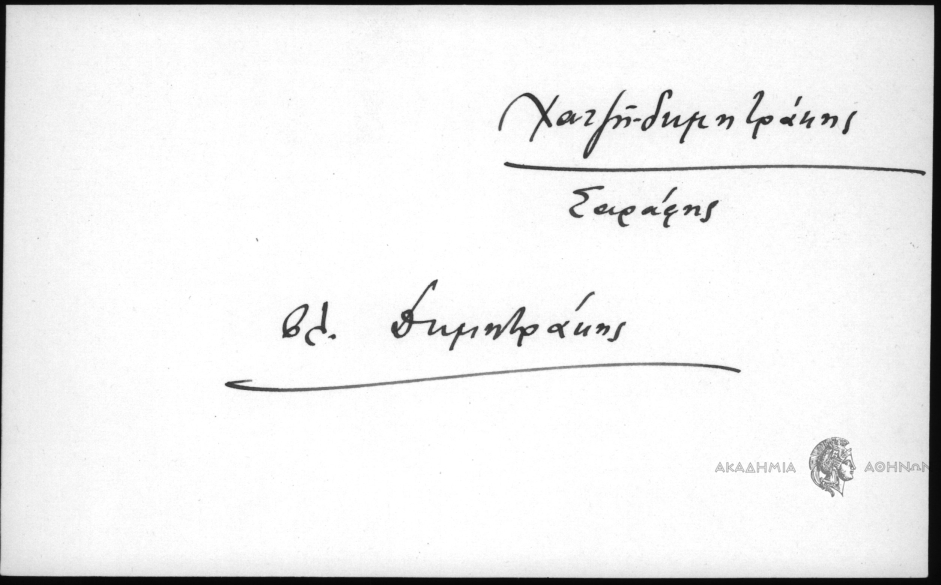 Χατζῆ-δημητράκης
Σαράφης
βλ. Δημητράκης
ΑΚΑΔΗΜΙΑ ΑΘΗΝΩΝ